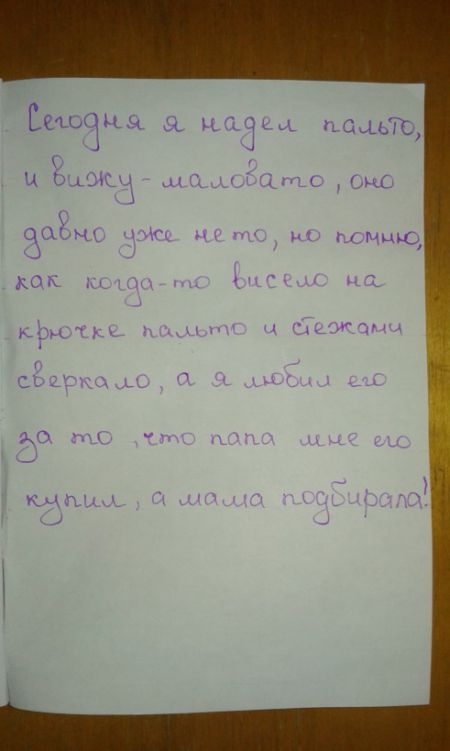 Сегодня я надел пальто,
и вижу - маловато, оно
давно уже не то, но помню,
как когда-то висело на
крючке пальто и стежами
сверкало, а я любил его
за то, что папа мне его
купил, а мама подбирала!